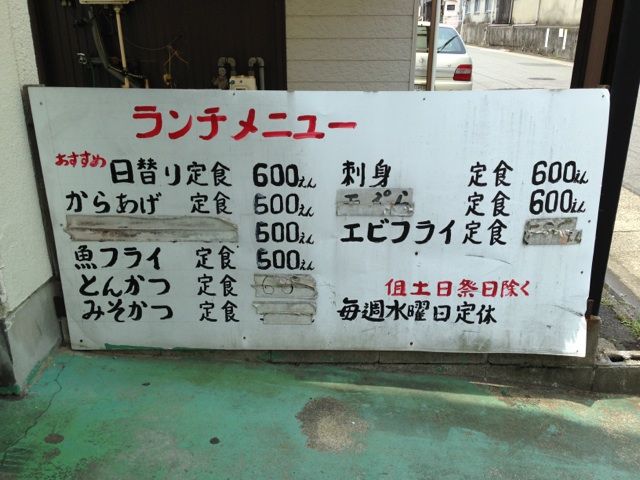 ランチメニュー
おすすめ 日替り定食 600えん
からあげ 定食 600えん
600えん
魚フライ 定食 600えん
とんかつ 定食
みそかつ 定食
刺身 定食 600えん
定食 600えん
エビフライ定食
但土日祭日除く
毎週水曜日定休